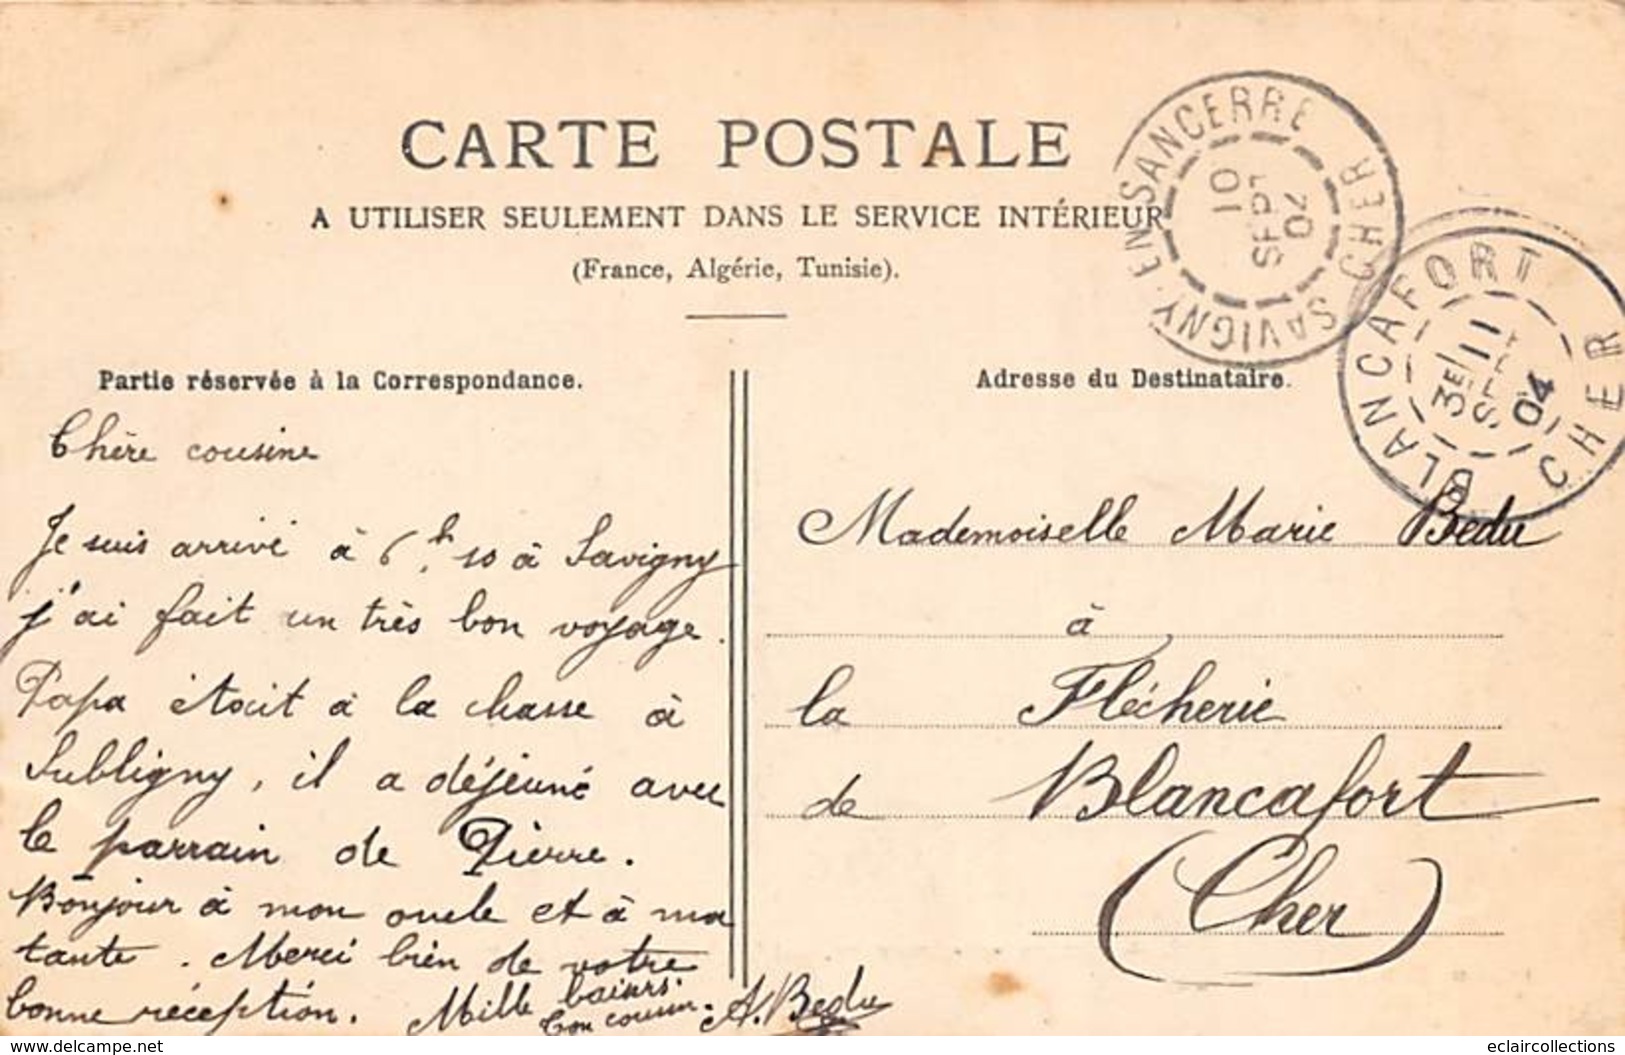 CARTE POSTALE
A UTILISER SEULEMENT DANS LE SERVICE INTÉRIEUR
(France, Algérie, Tunisie).
SAVIGNY-EN-SANCERRE CHER
10
SEPT
04
BLANCAFORT CHER
3E/ 11
SEPT
04
Partie réservée à la Correspondance.
Chère cousine
Je suis arrivé à 6h,10 à Savigny
j'ai fait un très bon voyage.
Papa était à la chasse à
Subligny, il a déjeuné avec
le parrain de Pierre.
Bonjour à mon oncle et à ma
tante. Merci bien de votre
bonne réception. Mille baisers.
Ton cousin. A. Bedu
Adresse du Destinataire.
Mademoiselle Marie Bedu
à
la Flécherie
de Blancafort
(Cher)
www.delcampe.net
eclaircollections